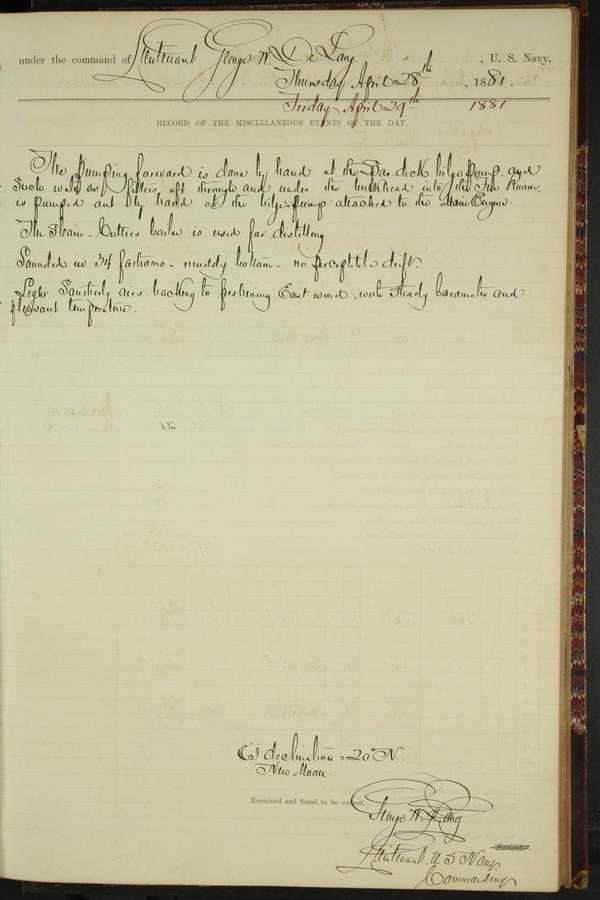 under the command of Lieutenant George W. De Long, U. S. Navy,
Thursday April 28th, 1881.
Friday April 29th 1881
RECORD OF THE MISCELLANEOUS EVENTS OF THE DAY.
The pumping forward is done by hand at the Spar-deck bilge pump, and
such water as filters aft through and under the bulkhead into the Fire Room
is pumped out by hand at the bilge-pump attached to the Main Engine.
The Steam-Cutters boiler is used for distilling.
Sounded in 34 fathoms - muddy bottom - no perceptible drift.
Light Southerly airs backing to freshening East wind, with steady barometer and
pleasant temperature.
declination = 20° N
New Moon.
Examined and found to be correct.
George W. De Long
Navigator.
Lieutenant. U S Navy.
Commanding